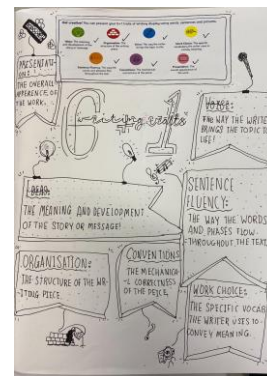 PRESENTAT-
IONS:
THE OVERALL
APPERENCE OF
THE WORK.
G#1
writing crafts
VOICE:
THE WAY THE WRITER
BRINGS THE TOPIC TO
LIFE!
IDEAS:
THE MEANING AND DEVELOPMENT
OF THE STORY OR MESSAGE!
SENTENCE
FLUENCY:
THE WAY THE WORDS
AND PHASES FLOW
THROUGHOUT THE TEXT
ORGANISATION:
THE STRUCTURE OF THE WR-
ITING PIECE.
CONVENTIONS
THE MECHANICA-
L CORRECTNESS
OF THE PEICE.
WORK CHOICE:
THE SPECIFIC VOCAB
THE WRITER USES TO
CONVEY MEANING.